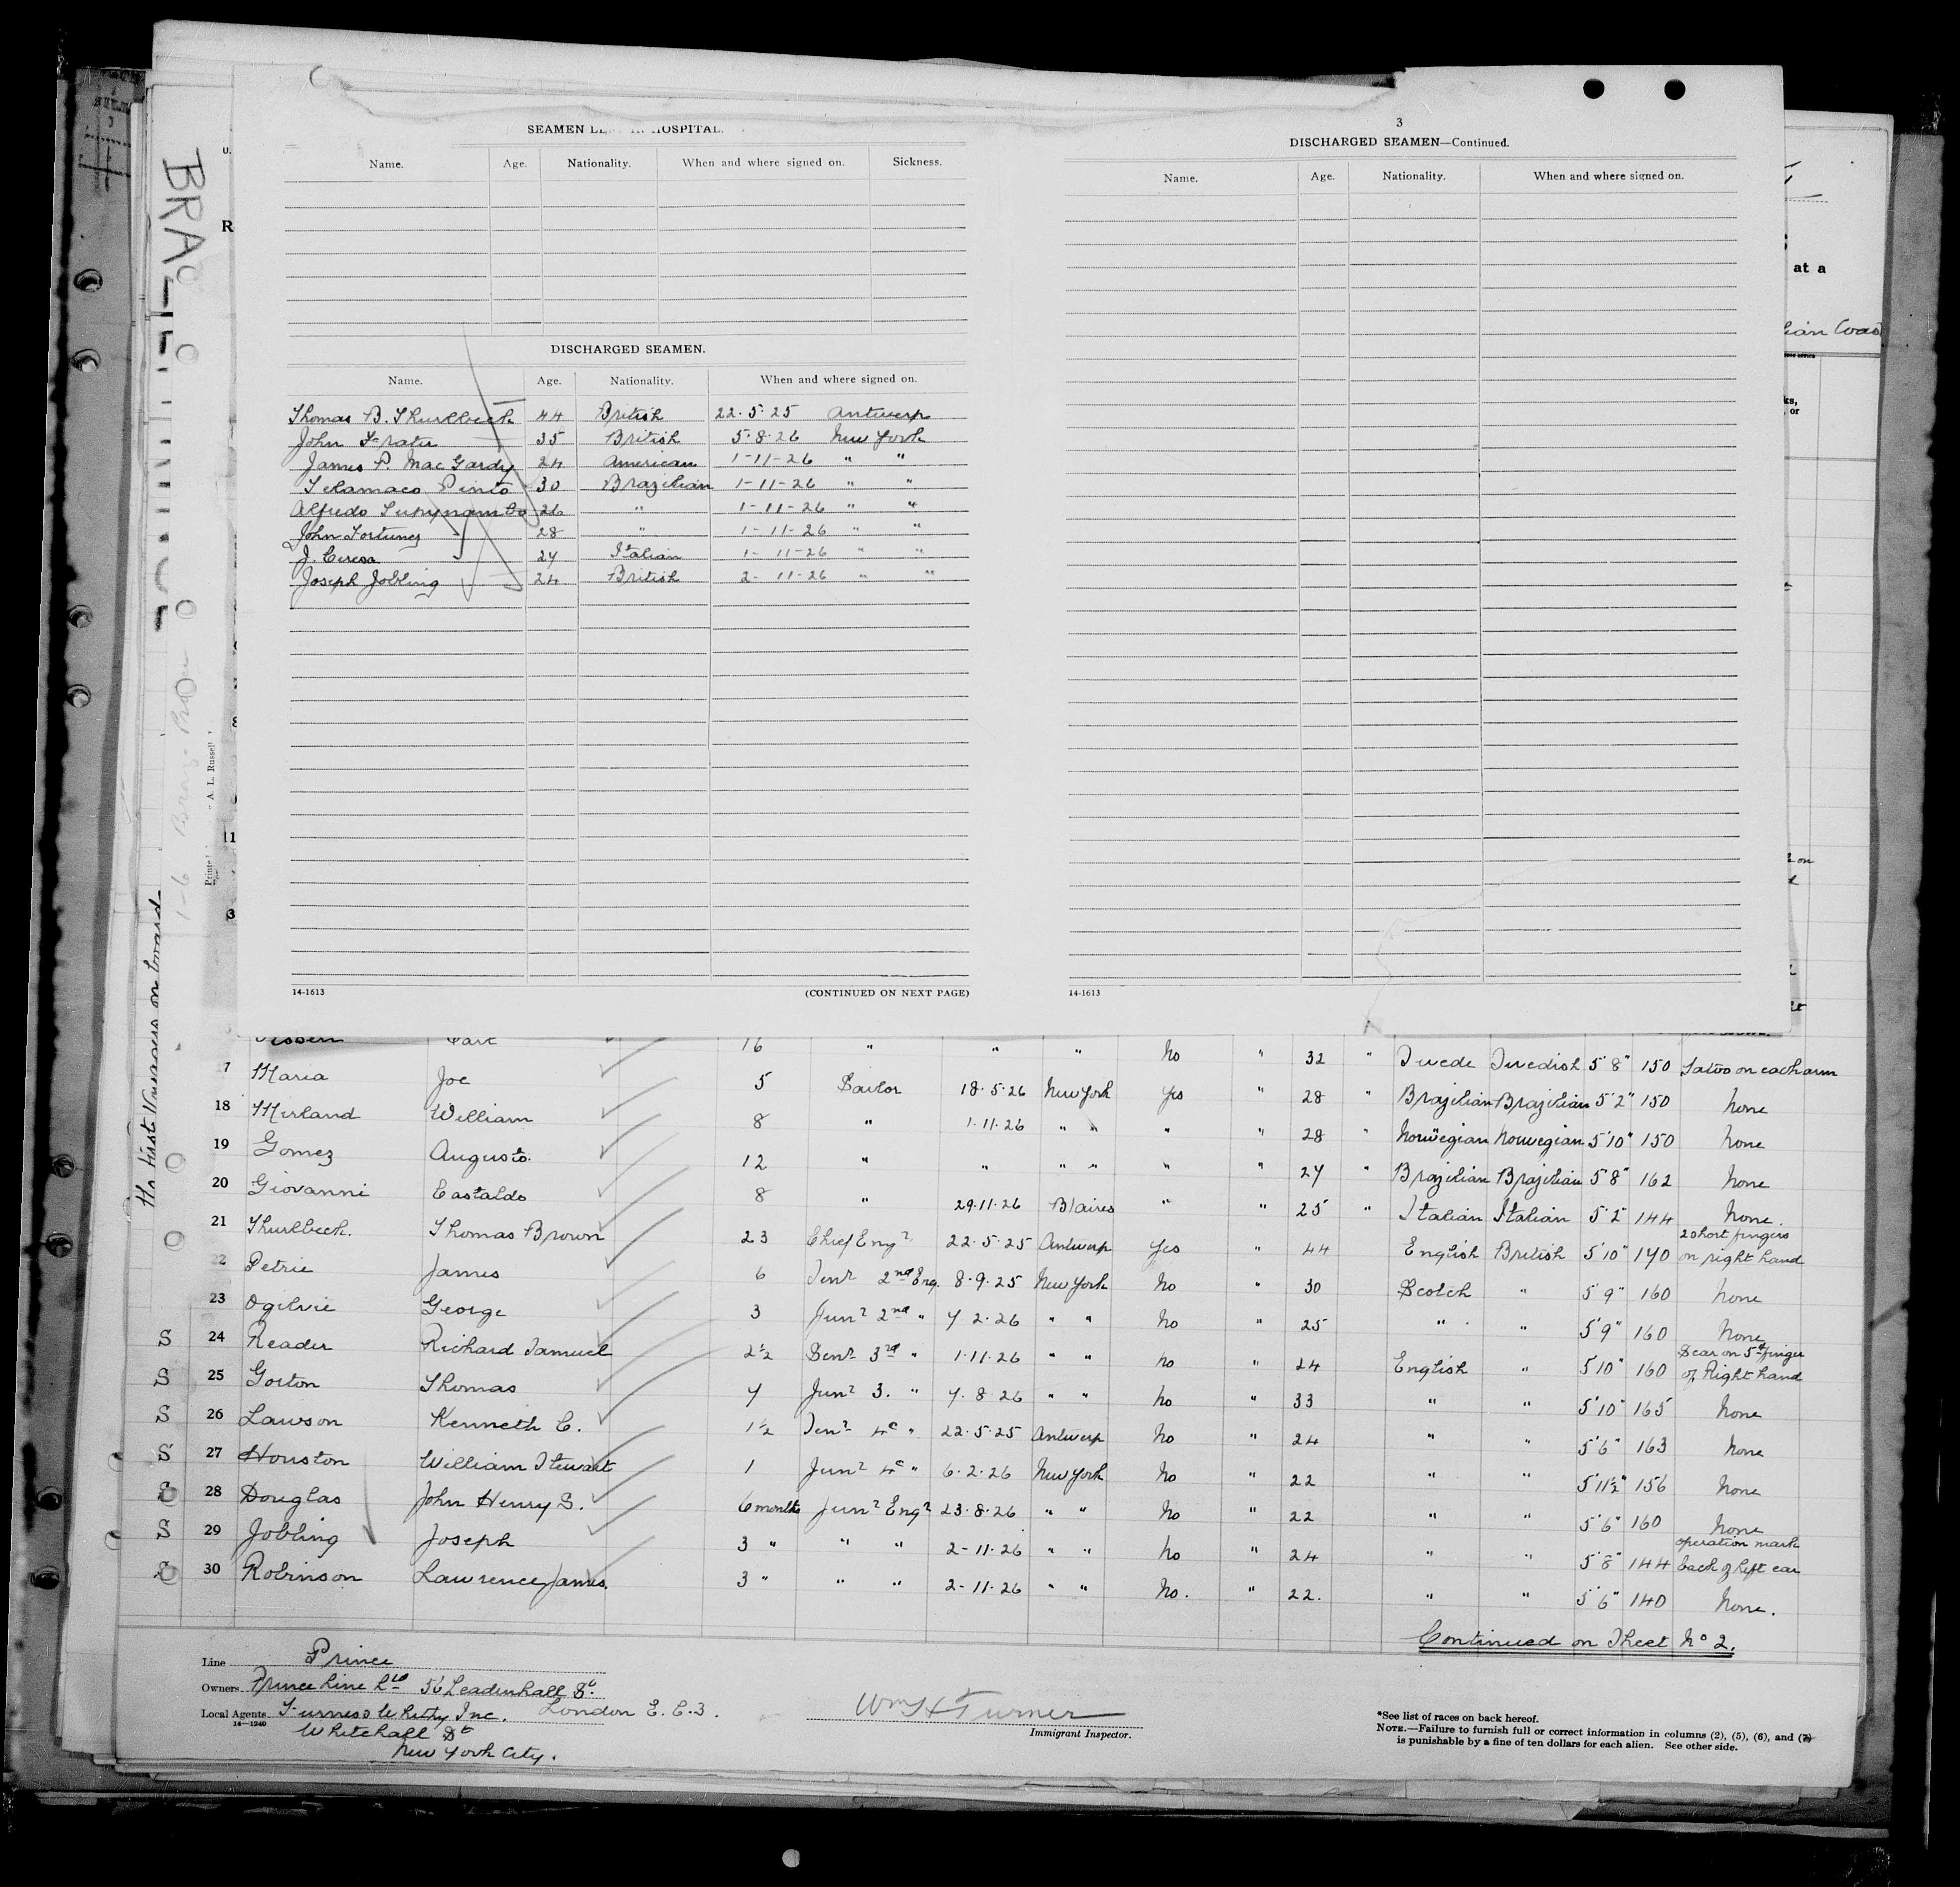 SEAMEN HOSPITAL.
Name. Age. Nationality. When and where signed on. Sickness.
DISCHARGED SEAMEN.
Name. Age. Nationality. When and where signed on.
Thomas B. Thurlbeck 44 British 22.5.25 Antwerp
John Frater 35 British 5.8.26 New York
James P. MacGardy 24 American 1-11-26 " "
Telamaco Pinto 30 Brazilian 1-11-26 " "
Alfredo 26 " 1-11-26 " "
John Fortunez 28 " 1-11-26 " "
J. Ceresa 27 Italian 1-11-26 " "
Joseph Jobling 24 British 2-11-26 " "
14-1613 (CONTINUED ON NEXT PAGE)
3
DISCHARGED SEAMEN—Continued.
Name. Age. Nationality. When and where signed on.
14-1613
at a
Coast
A. L. Russell
on board
Carl 16 " " " No " 32 " Swede Swedish 5'8" 150 Tatoo on each arm
7 Maria Joe 5 Sailor 18.5.26 New York Yes " 28 " Brazilian Brazilian 5'2" 150 None
18 Merland William 8 " 1.11.26 " " " " 28 " Norwegian Norwegian 5'10" 150 None
19 Gomez Augusto. 12 " " " " " " 27 " Brazilian Brazilian 5'8" 162 None
20 Giovanni Castaldo 8 " 29.11.26 B/aires " " 25 " Italian Italian 5'2" 144 None.
21 Thurlbeck. Thomas Brown 23 Chief Engr 22.5.25 Antwerp Yes " 44 English British 5'10" 170 2 short fingers on right hand
22 Petrie James 6 Senr 2nd Eng. 8.9.25 New York No " 30 Scotch " 5'9" 160 None
23 Ogilvie George 3 Junr 2nd " 7.2.26 " " No " 25 " " 5'9" 160 None
S 24 Reader Richard Samuel 2½ Senr 3rd " 1.11.26 " " No " 24 English " 5'10" 160 Scar on 5th finger of Right hand
S 25 Gorton Thomas 7 Junr 3. " 7.8.26 " " No " 33 " " 5'10" 165 None
S 26 Lawson Kenneth C. 1½ Senr 4th " 22.5.25 Antwerp No " 24 " " 5'6" 163 None
S 27 Houston William Stewart 1 Junr 4th " 6.2.26 New York No " 22 " " 5'11½" 156 None
S 28 Douglas John Henry S. 6 months Junr Engr 23.8.26 " " No " 22 " " 5'6" 160 None
S 29 Jobling Joseph 3 " " " 2-11-26 " " No " 24 " " 5'8" 144 operation mark back of left ear
S 30 Robinson Lawrence James. 3 " " " 2-11-26 " " No. " 22. " " 5'6" 140 None.
Continued on Sheet No 2.
Line Prince
Owners Prince Line Ltd 56 Leadenhall St.
London E.C.3.
Local Agents Furness Withy Inc.
14-1240
Whitehall St
New York City.
Wm H Turner
Immigrant Inspector.
*See list of races on back hereof.
NOTE.—Failure to furnish full or correct information in columns (2), (5), (6), and (7)
is punishable by a fine of ten dollars for each alien. See other side.